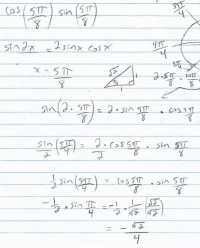 cos(5π/8) sin(5π/8)
5π/4
sin 2x = 2 sin x cos x
4π/4
x = 5π/8
√2 1 1
2 · 5π/8 = 10π/8
sin(2 · 5π/8) = 2 · sin 5π/8 · cos 5π/8
sin/2 (5π/4) = 2/2 · cos 5π/8 · sin 5π/8
1/2 sin(5π/4) = cos 5π/8 · sin 5π/8
-1/2 · sin π/4 = -1/2 · 1/√2 (√2/√2)
= -√2/4